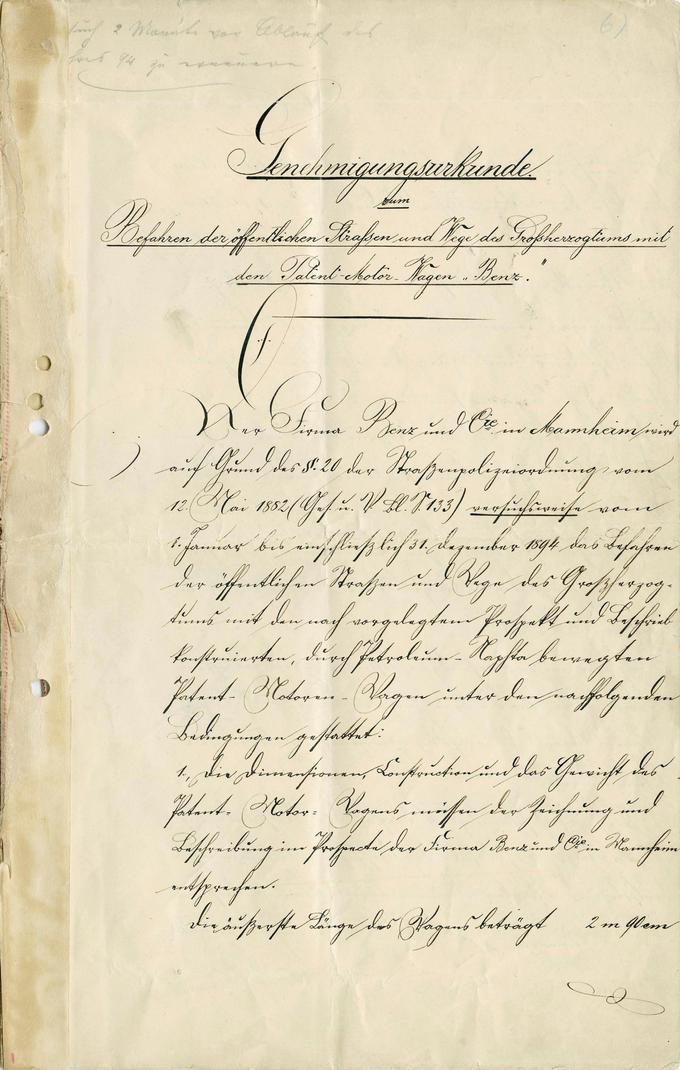 2 Monate vor Ablauf des
94 zu erneuern
67
Genehmigungsurkunde.
zum
Befahren der öffentlichen Strassen und Wege des Großherzogtums mit
den Patent-Motor-Wagen „Benz."
Der Firma Benz und Cie in Mannheim wird
auf Grund des §. 20 der Straßenpolizeiordnung vom
12. Mai 1882 (Ges. u. V. Bl. S. 133) versuchsweise vom
1. Januar bis einschließlich 31. Dezember 1894 das Befahren
der öffentlichen Straßen und Wege des Großherzog-
tums mit den nach vorgelegtem Prospekt und Beschrieb
konstruierten, durch Petroleum-Naphta bewegten
Patent-Motoren-Wagen unter den nachfolgenden
Bedingungen gestattet:
1., Die Dimensionen, Construction und das Gewicht des
Patent-Motor-Wagens müssen der Zeichnung und
Beschreibung im Prospecte der Firma Benz und Cie in Mannheim
entsprechen.
Die äußerste Länge des Wagens beträgt 2 m 90 cm